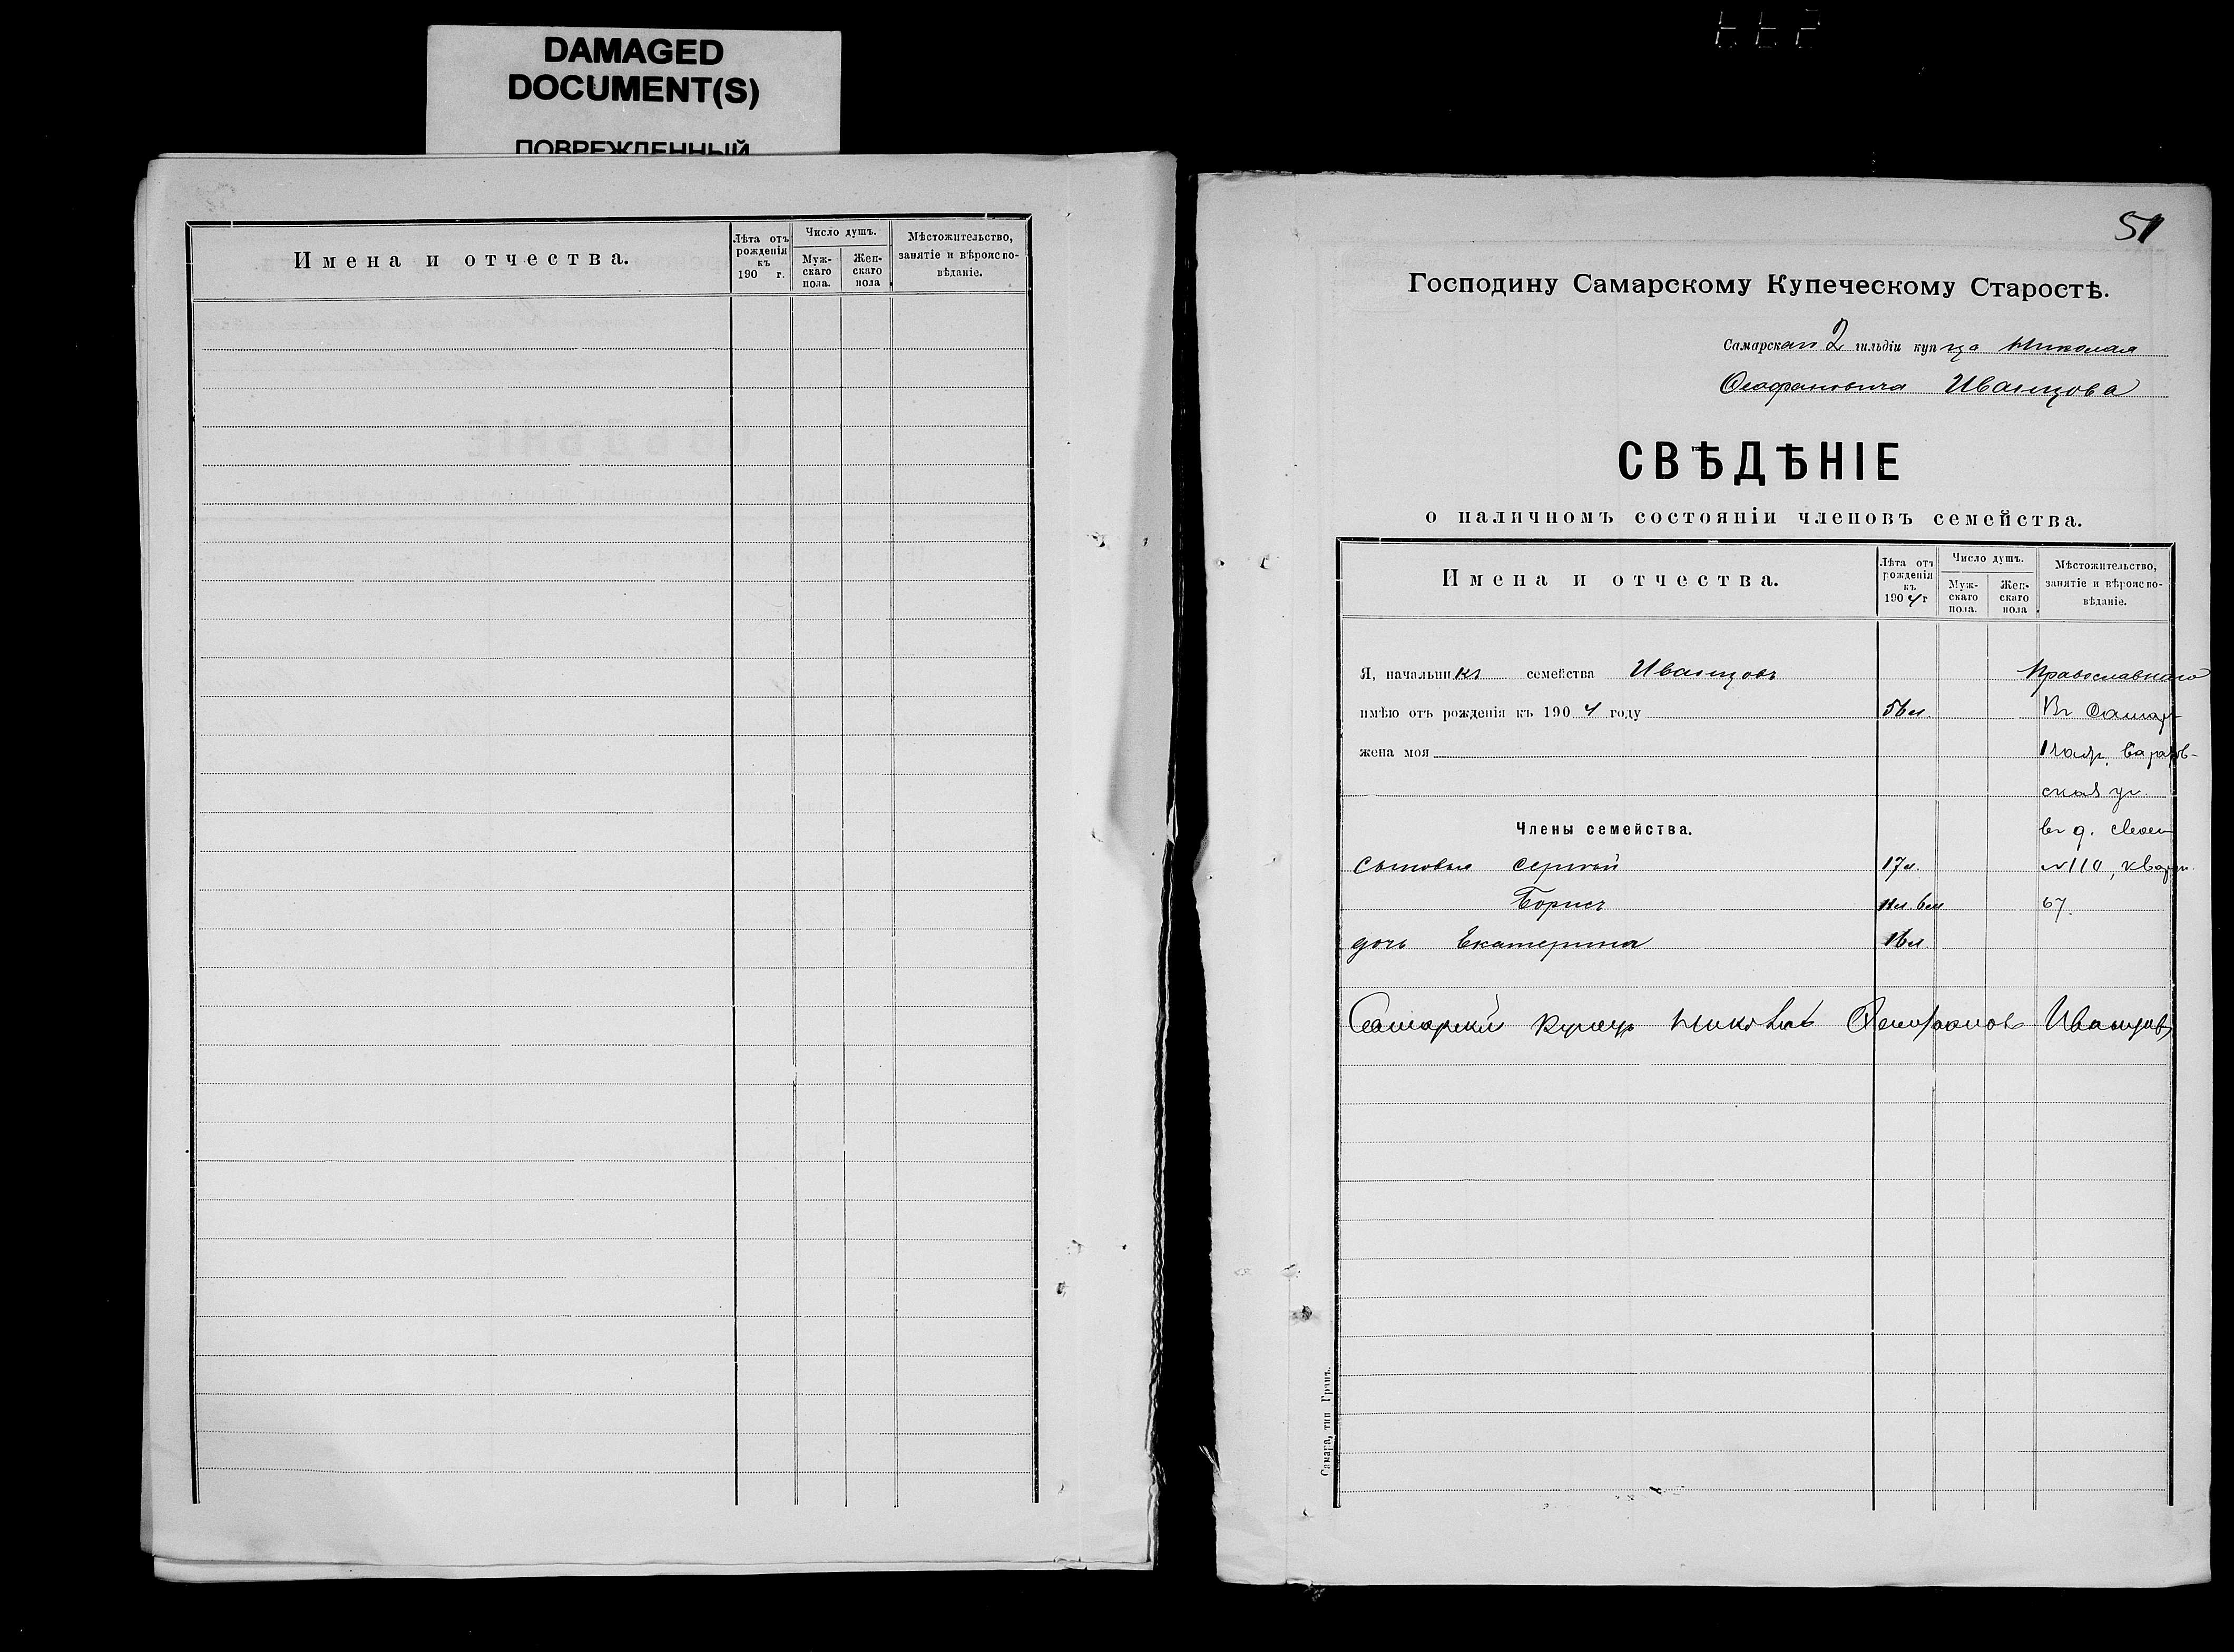 DAMAGED
DOCUMENT(S)
ПОВРЕЖДЕННЫЙ
Имена и отчества.
Лѣта отъ рожденія къ 190 г.
Число душъ.
Муж- скаго пола.
Жен- скаго пола
Мѣстожительство, занятіе и вѣроиспо- вѣданіе.
51
Господину Самарскому Купеческому Старостѣ.
Самарскаго 2 гильдіи купца Николая
Феофановича Иванцова
СВѢДѢНІЕ
о наличномъ состояніи членовъ семейства.
Имена и отчества.
Лѣта отъ рожденія къ 1904 г
Число душъ.
Муж- скаго пола.
Жен- скаго пола
Мѣстожительство, занятіе и вѣроиспо- вѣданіе.
Я, начальникъ семейства Иванцовъ Православнаго
имѣю отъ рожденія къ 1904 году 56 л. Въ Самар
жена моя
ская ул.
Члены семейства. въ д.
Сыновья Сергѣй 17 л. №110, кварт.
Борисъ 11 л 6 м 67.
дочь Екатерина 16 л
Самарскій Купецъ Николай Феофановъ Иванцовъ
Самара, тип Гранъ.